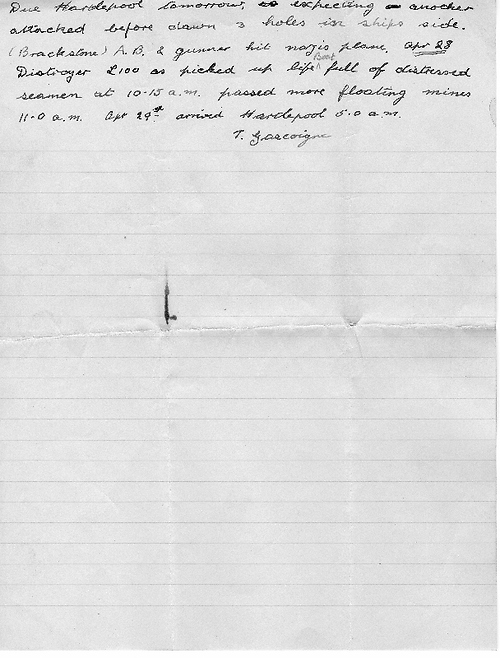 Due Hardepool tomorrow, expecting another
attacked before dawn 3 holes in ships side.
(Brackstone) A.B. & gunner hit nazis plane. Apr 28
Distroyer L100 as picked up life Boat full of distressed
seamen at 10-15 a.m. passed more floating mines
11.0 a.m. Apr 29th arrived Hardepool 5.0 a.m.
T. Gascoigne